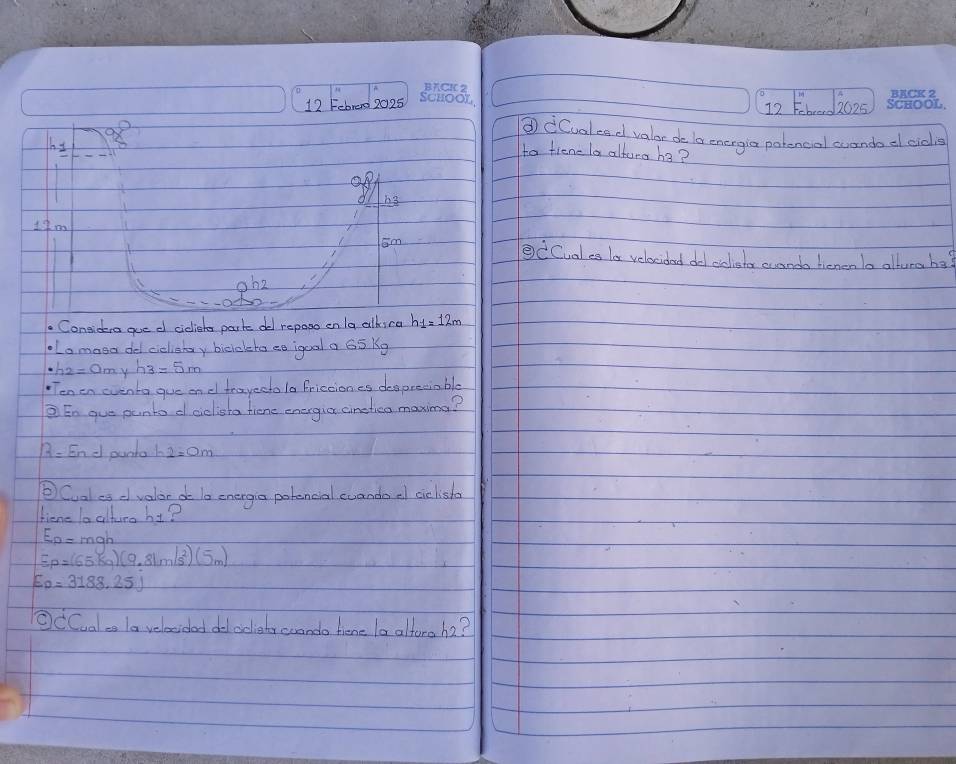 D M A
12 Febrero 2025
BACK 2
SCHOOL.
h1
12m
h3
5m
h2
• Considera que el ciclista parte del reposo en la altura h1=12m
• La masa del ciclista y bicicleta es igual a 65 Kg
• h2=0m y h3=5m
• Ten en cuenta que en el trayecto la friccion es despreciable
a) En que punto el ciclista tiene energia cinetica maxima?
R= En el punto h2=0m
b) Cual es el valor de la energia potencial cuando el ciclista
tiene la altura h1?
Ep=mgh
Ep=(65Kg)(9.81m/s²)(5m)
Ep=3188.25 j
c) ¿Cual es la velocidad del ciclista cuando tiene la altura h2?
D M A
12 Febrero 2025
BACK 2
SCHOOL.
d) ¿Cual es el valor de la energia potencial cuando el ciclis
ta tiene la altura h3?
e) ¿Cual es la velocidad del ciclista cuando tienen la altura h3?